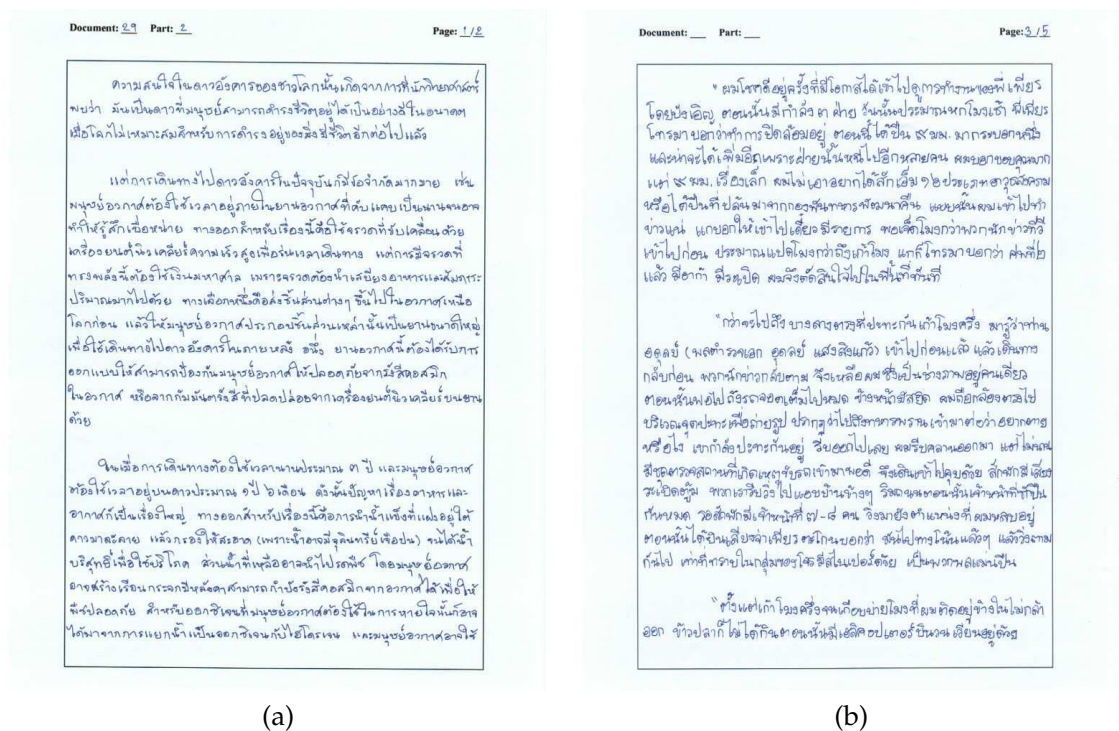 Document: 29 Part: 2 Page: 1/2
ความสนใจในดาวอังคารของชาวโลกนั้นเกิดจากการที่นักวิทยาศาสตร์
พบว่า มันเป็นดาวที่มนุษย์สามารถดำรงชีวิตอยู่ได้เป็นอย่างดีในอนาคต
เมื่อโลกไม่เหมาะสมสำหรับการดำรงอยู่ของสิ่งมีชีวิตอีกต่อไปแล้ว
แต่การเดินทางไปดาวอังคารในปัจจุบันก็มีข้อจำกัดมากมาย เช่น
มนุษย์อวกาศต้องใช้เวลาอยู่ภายในยานอวกาศที่คับแคบเป็นนานจนอาจ
ทำให้รู้สึกเบื่อหน่าย ทางออกสำหรับเรื่องนี้คือใช้จรวดที่ขับเคลื่อนด้วย
เครื่องยนต์นิวเคลียร์ความเร็วสูงเพื่อร่นเวลาเดินทาง แต่การมีจรวดที่
ทรงพลังนี้ต้องใช้เงินมหาศาล เพราะจรวดต้องนำเสบียงอาหารและสัมภาระ
ปริมาณมากไปด้วย ทางเลือกหนึ่งคือส่งชิ้นส่วนต่างๆ ขึ้นไปในอวกาศเหนือ
โลกก่อน แล้วให้มนุษย์อวกาศประกอบชิ้นส่วนเหล่านั้นเป็นยานขนาดใหญ่
เพื่อใช้เดินทางไปดาวอังคารในภายหลัง อนึ่ง ยานอวกาศนี้ต้องได้รับการ
ออกแบบให้สามารถป้องกันมนุษย์อวกาศให้ปลอดภัยจากรังสีคอสมิก
ในอวกาศ หรือจากกัมมันตรังสีที่ปลดปล่อยจากเครื่องยนต์นิวเคลียร์บนยาน
ด้วย
ในเมื่อการเดินทางต้องใช้เวลานานประมาณ ๓ ปี และมนุษย์อวกาศ
ต้องใช้เวลาอยู่บนดาวประมาณ ๑ปี ๖ เดือน ดังนั้นปัญหาเรื่องอาหารและ
อากาศก็เป็นเรื่องใหญ่ ทางออกสำหรับเรื่องนี้คือการนำน้ำแข็งที่แฝงอยู่ใต้
ดาวมาละลาย แล้วกรองให้สะอาด (เพราะน้ำอาจมีจุลินทรีย์เจือปน) จนได้น้ำ
บริสุทธิ์เพื่อใช้บริโภค ส่วนน้ำที่เหลืออาจนำไปรดพืช โดยมนุษย์อวกาศ
อาจสร้างเรือนกระจกมีหลังคาสามารถกำบังรังสีคอสมิกจากอวกาศได้เพื่อให้
พืชปลอดภัย สำหรับออกซิเจนที่มนุษย์อวกาศต้องใช้ในการหายใจนั้นก็อาจ
ได้มาจากการแยกน้ำเป็นออกซิเจนกับไฮโดรเจน และมนุษย์อวกาศอาจใช้
(a)
Document: __ Part: __ Page: 3/5
"ผมโชคดีอยู่ครั้งที่มีโอกาสได้เข้าไปดูการทำงานของพี่เพียร
โดยบังเอิญ ตอนนั้นมีกำลัง ๓ ฝ่าย วันนั้นประมาณหกโมงเช้า พี่เพียร
โทรมาบอกว่าทำการปิดล้อมอยู่ ตอนนี้ได้ปืน ๙ มม. มากระบอกหนึ่ง
และน่าจะได้เพิ่มอีกเพราะฝ่ายนั้นหนีไปอีกหลายคน ผมบอกขอบคุณมาก
แต่ ๙ มม. เรื่องเล็ก ผมไม่เอาอยากได้สักเอ็ม ๑๖ ประเภทอาวุธสงคราม
หรือได้ปืนที่ปล้นมาจากกองพันทหารพัฒนาคืน แบบนั้นผมเข้าไปทำ
ข่าวแน่ แกบอกให้เข้าไปเดี๋ยวมีรายการ พอเจ็ดโมงกว่าพวกนักข่าวทีวี
เข้าไปก่อน ประมาณแปดโมงกว่าถึงเก้าโมง แกก็โทรมาบอกว่า ศพที่๒
แล้ว มีอาก้า มีระเบิด ผมจึงตัดสินใจไปในพื้นที่ทันที
"กว่าจะไปถึงบางลางตรงที่ปะทะกันเก้าโมงครึ่ง มารู้ว่าท่าน
อดุลย์ (พลตำรวจเอก อดุลย์ แสงสิงแก้ว) เข้าไปก่อนแล้ว แล้วเดินทาง
กลับก่อน พวกนักข่าวกลับตาม จึงเหลือผมซึ่งเป็นช่างภาพอยู่คนเดียว
ตอนนั้นพอไปถึงรถจอดเต็มไปหมด ข้างหน้ามีสกัด ผมถือกล้องตรงไป
บริเวณจุดปะทะเพื่อถ่ายรูป ปรากฏว่าไปถึงทหารพรานเข้ามาต่อว่าอยากตาย
หรือไง เขากำลังปะทะกันอยู่ รีบออกไปเลย ผมรีบคลานออกมา แต่ไม่นาน
มีชุดตรวจสถานที่เกิดเหตุขับรถเข้ามาพอดี จึงเดินเข้าไปคุยด้วย สักพักมีเสียง
ระเบิดตู้ม พวกเรารีบวิ่งไปแอบบ้านข้างๆ ริมถนนตอนนั้นเจ้าหน้าที่ชักปืน
กันหมด รอสักพักมีเจ้าหน้าที่ ๗-๘ คน วิ่งมายังตำแหน่งที่ผมหลบอยู่
ตอนนั้นได้ยินเสียงจ่าเพียรตะโกนบอกว่า มันไปทางโน้นแล้วๆ แล้ววิ่งตาม
กันไป เท่าที่ทราบในกลุ่มของโจรมีสไนเปอร์ด้วย เป็นพวกพลแม่นปืน
"ตั้งแต่เก้าโมงครึ่งจนเกือบบ่ายโมงที่ผมติดอยู่ข้างในไม่กล้า
ออก ข้าวปลาก็ไม่ได้กินตอนนั้นมีเฮลิคอปเตอร์บินวนเวียนอยู่ด้วย
(b)